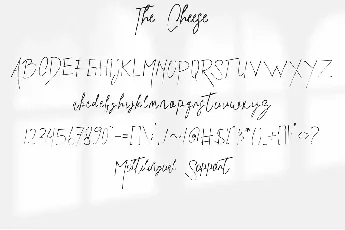 The Cheese
ABCDEFGHIJKLMNOPQRSTUVWXYZ
abcdefghijklmnopqrstuvwxyz
Multilingual Support